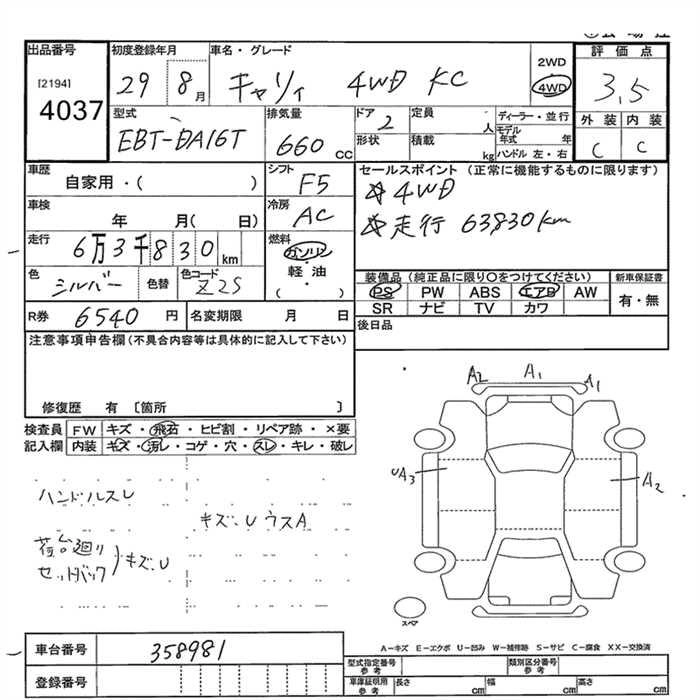 出品番号
[2194]
4037
初度登録年月
29 8月
車名・グレード
キャリイ 4WD KC
2WD
4WD
評価点
3.5
外装 内装
C C
型式
EBT-DA16T
排気量
660 CC
ドア
2
定員
人
形状
積載
kg
ディーラー・並行
モデル
年式 年
ハンドル 左・右
車歴
自家用・( )
シフト
F5
セールスポイント (正常に機能するものに限ります)
☆4WD
☆走行 63830km
車検
年 月( 日)
冷房
AC
走行
6万3千830km
燃料
ガソリン
・
軽油
( ・ )
色
シルバー
色替
色コード
Z2S
装備品(純正品に限り○をつけてください)
PS PW ABS エアB AW
SR ナビ TV カワ
新車保証書
有・無
R券 6540円
名変期限 月 日
後日品
注意事項申告欄(不具合内容等は具体的に記入して下さい)
修復歴 有 〔箇所 〕
検査員
記入欄
FW キズ・飛石・ヒビ割・リペア跡・×要
内装 キズ・汚レ・コゲ・穴・スレ・キレ・破レ
ハンドルスレ
キズ.U ウスA
荷台廻り
セットバック
キズ.U
A2 A1 A1
UA3
A2
スペア
A-キズ E-エクボ U-凹み W-補修跡 S-サビ C-腐食 XX-交換済
車台番号 358981
登録番号
型式指定番号
参考
類別区分番号
参考
車庫証明用
参考
長さ cm
幅 cm
高さ cm